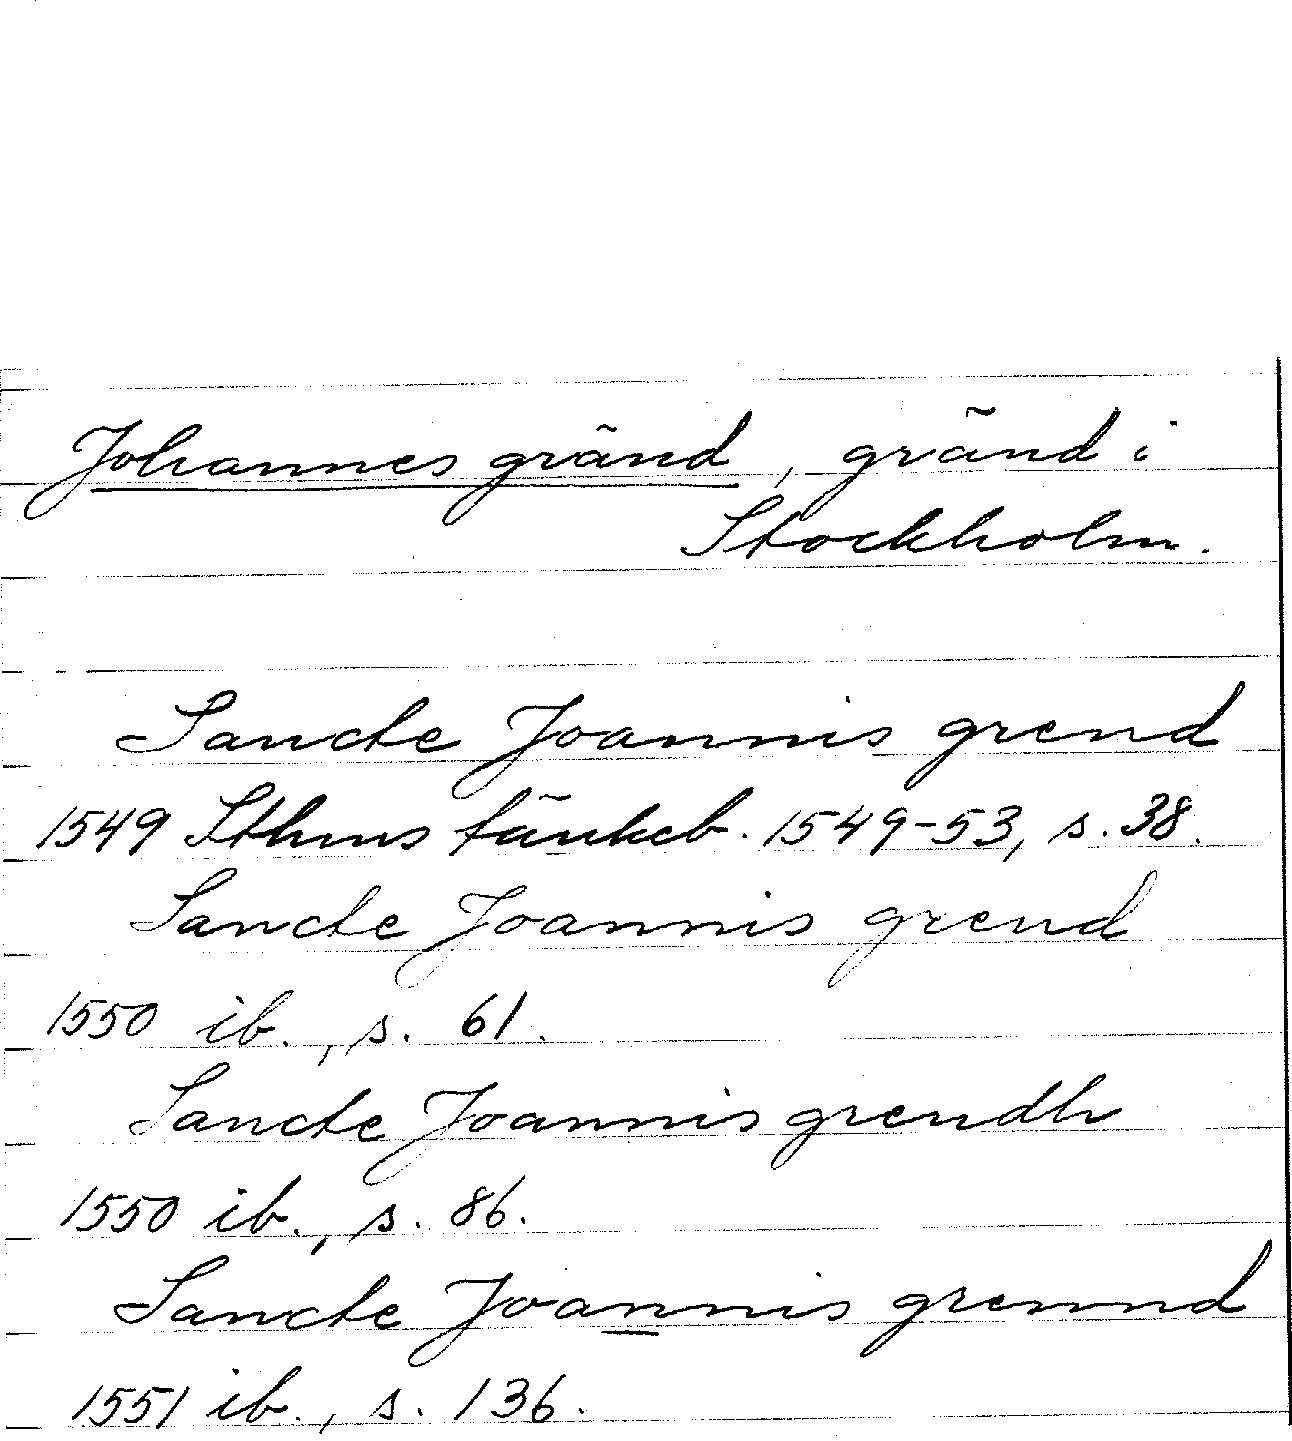 Johannes gränd, gränd i
Stockholm.
Sancte Joannis grend
1549 Sthms tänkeb. 1549-53, s. 38.
Sancte Joannis grend
1550 ib., s. 61.
Sancte Joannis grendh
1550 ib., s. 86.
Sancte Joannis grennd
1551 ib., s. 136.